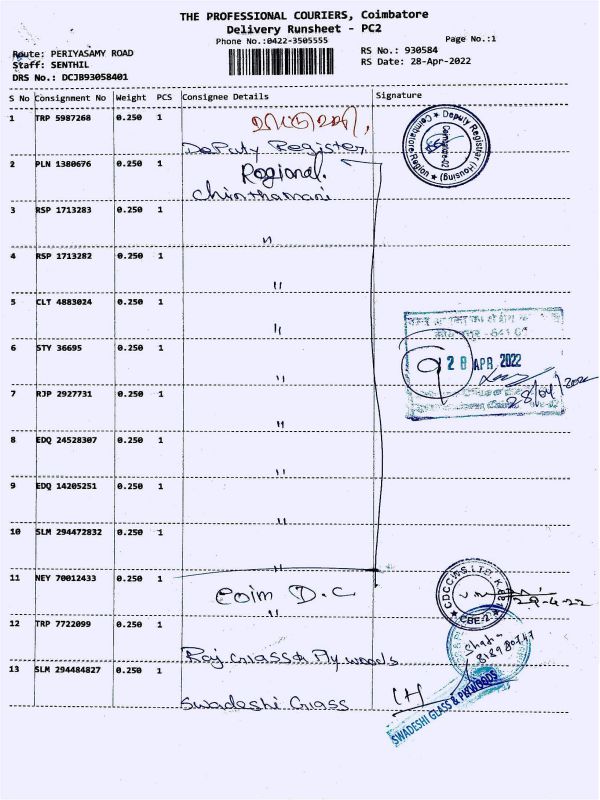 THE PROFESSIONAL COURIERS, Coimbatore
Delivery Runsheet - PC2
Phone No.:0422-3505555
Page No.:1
Route: PERIYASAMY ROAD
Staff: SENTHIL
DRS No.: DCJB93058401
RS No.: 930584
RS Date: 28-Apr-2022
S No Consignment No Weight PCS Consignee Details Signature
1 TRP 5987268 0.250 1
Deputy Register
2 PLN 1380676 0.250 1 Regional.
Chinthamani
3 RSP 1713283 0.250 1
"
4 RSP 1713282 0.250 1
"
5 CLT 4883024 0.250 1
"
6 STY 36695 0.250 1
"
7 RJP 2927731 0.250 1
"
8 EDQ 24528307 0.250 1
"
9 EDQ 14205251 0.250 1
"
10 SLM 294472832 0.250 1
"
11 NEY 70012433 0.250 1 Coim D.C
"
12 TRP 7722099 0.250 1
Raj Glass & Plywoods
13 SLM 294484827 0.250 1
Swadeshi Glass
Deputy Registrar (Housing) ★ Coimbatore Region ★
28 APR 2022
28/04/2022
CBE-2
29-4-22
SWADESHI GLASS & PLYWOODS